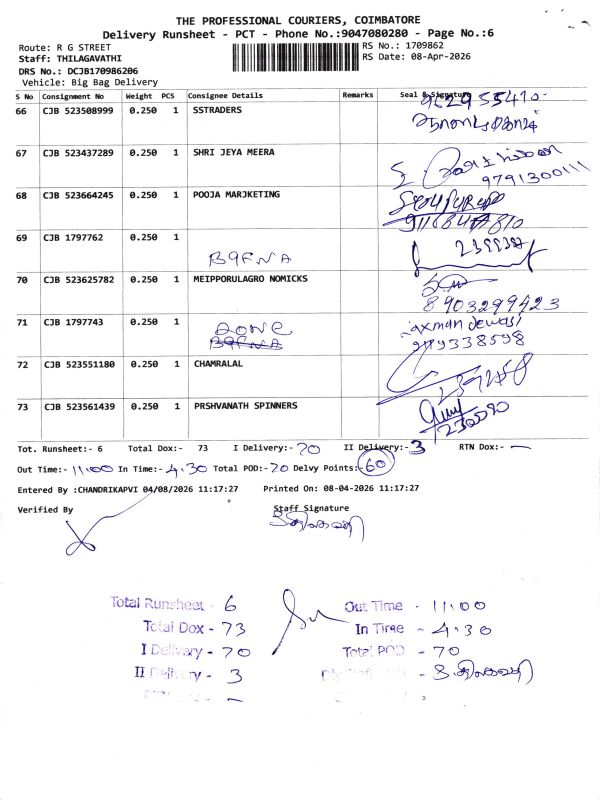 THE PROFESSIONAL COURIERS, COIMBATORE
Delivery Runsheet - PCT - Phone No.:9047080280 - Page No.:6
Route: R G STREET RS No.: 1709862
Staff: THILAGAVATHI RS Date: 08-Apr-2026
DRS No.: DCJB170986206
Vehicle: Big Bag Delivery
S No Consignment No Weight PCS Consignee Details Remarks Seal & Signature
66 CJB 523508999 0.250 1 SSTRADERS
67 CJB 523437289 0.250 1 SHRI JEYA MEERA
9791300111
68 CJB 523664245 0.250 1 POOJA MARJKETING
69 CJB 1797762 0.250 1
70 CJB 523625782 0.250 1 MEIPPORULAGRO NOMICKS
8903299423
71 CJB 1797743 0.250 1
9119338598
72 CJB 523551180 0.250 1 CHAMRALAL
73 CJB 523561439 0.250 1 PRSHVANATH SPINNERS
Tot. Runsheet:- 6 Total Dox:- 73 I Delivery:- 70 II Delivery:- 3 RTN Dox:- —
Out Time:- 11:00 In Time:- 4.30 Total POD:- 70 Delvy Points:- 60
Entered By :CHANDRIKAPVI 04/08/2026 11:17:27 Printed On: 08-04-2026 11:17:27
Verified By Staff Signature
Total Runsheet - 6 Out Time - 11:00
Total Dox - 73 In Time - 4.30
I Delivery - 70 Total POD - 70
II Delivery - 3